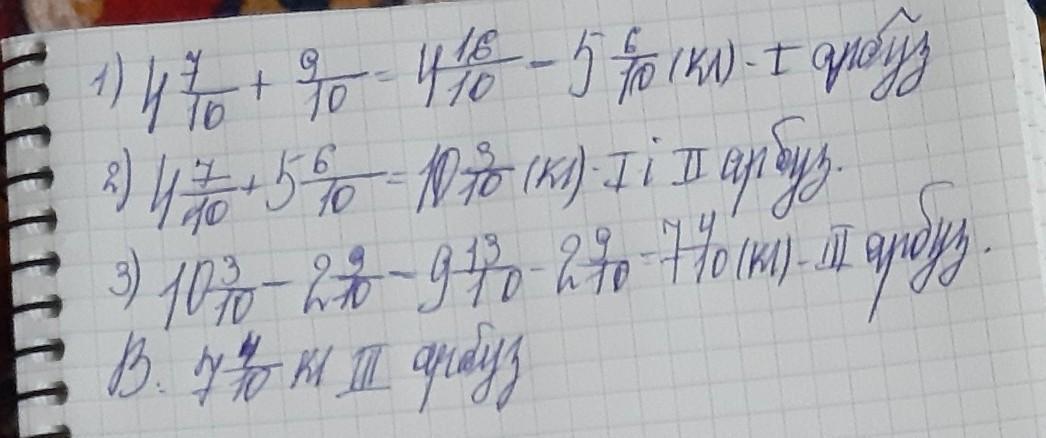 1) 4 7/10 + 9/10 = 4 16/10 - 5 6/10 (кг) - I арбуз
2) 4 7/10 + 5 6/10 = 10 3/10 (кг) - I і II арбуз.
3) 10 3/10 - 2 9/10 - 9 13/10 - 2 9/10 = 7 4/10 (кг) - III арбуз.
В. 7 4/10 кг III арбуз